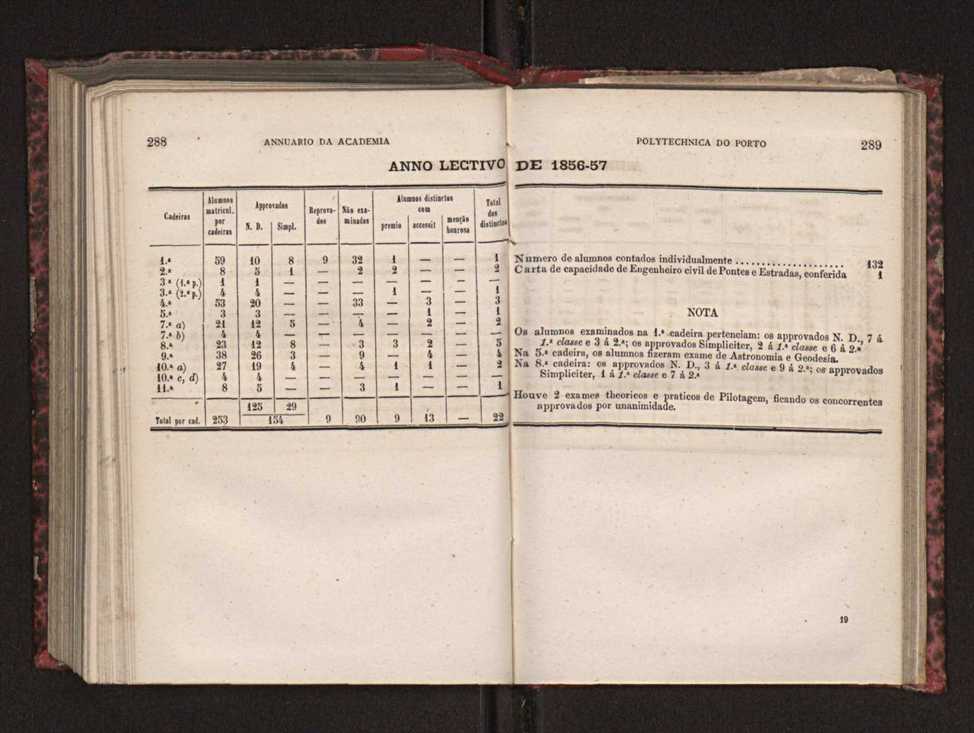 288
ANNUARIO DA ACADEMIA
POLYTECHNICA DO PORTO
289
ANNO LECTIVO DE 1856-57
Cadeiras | Alumnos matricul. por cadeiras | Approvados | Reprovados | Não examinados | Alumnos distinctos com | Total dos distinctos
N. D. | Simpl. | premio | accessit | menção honrosa
1.ª 59 10 8 9 32 1 — — 1
2.ª 8 5 1 — 2 2 — — 2
3.ª (1.ª p.) 1 1 — — — — — — —
3.ª (2.ª p.) 4 4 — — — 1 — — 1
4.ª 53 20 — — 33 — 3 — 3
5.ª 3 3 — — — — 1 — 1
7.ª a) 21 12 5 — 4 — 2 — 2
7.ª b) 4 4 — — — — — — —
8.ª 23 12 8 — 3 3 2 — 5
9.ª 38 26 3 — 9 — 4 — 4
10.ª a) 27 19 4 — 4 1 1 — 2
10.ª c, d) 4 4 — — — — — — —
11.ª 8 5 — — 3 1 — — 1
125 29
Total por cad. 253 154 9 90 9 13 — 22
Numero de alumnos contados individualmente .................... 132
Carta de capacidade de Engenheiro civil de Pontes e Estradas, conferida 1
NOTA
Os alumnos examinados na 1.ª cadeira pertenciam: os approvados N. D., 7 á
1.ª classe e 3 á 2.ª; os approvados Simpliciter, 2 á 1.ª classe e 6 á 2.ª
Na 5.ª cadeira, os alumnos fizeram exame de Astronomia e Geodesia.
Na 8.ª cadeira: os approvados N. D., 3 á 1.ª classe e 9 á 2.ª; os approvados
Simpliciter, 1 á 1.ª classe e 7 á 2.ª
Houve 2 exames theoricos e praticos de Pilotagem, ficando os concorrentes
approvados por unanimidade.
19